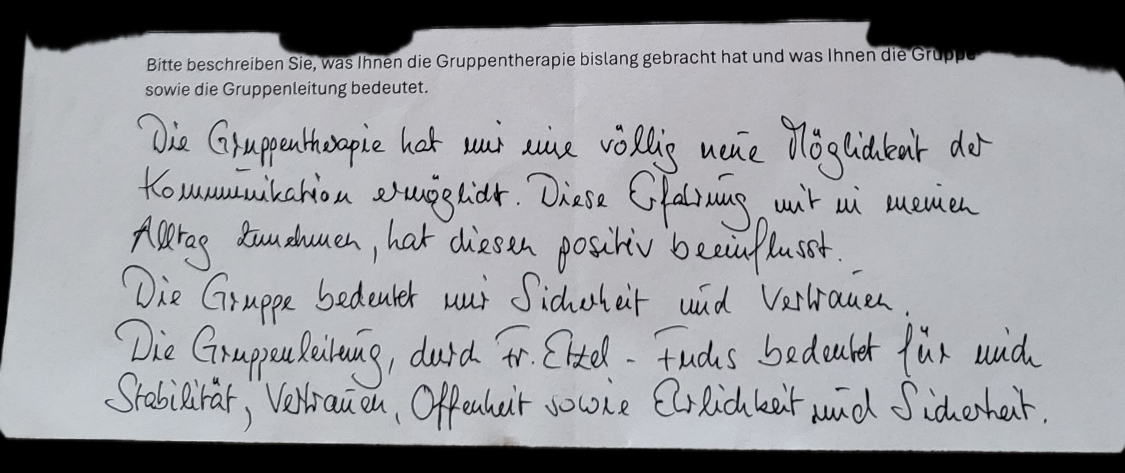 Bitte beschreiben Sie, was Ihnen die Gruppentherapie bislang gebracht hat und was Ihnen die Gruppe
sowie die Gruppenleitung bedeutet.
Die Gruppentherapie hat mir eine völlig neue Möglichkeit der
Kommunikation ermöglicht. Diese Erfahrung mit in meinen
Alltag zunehmen, hat diesen positiv beeinflusst.
Die Gruppe bedeutet mir Sicherheit und Vertrauen.
Die Gruppenleitung, durch Fr. Etzel - Fuchs bedeutet für mich
Stabilität, Vertrauen, Offenheit sowie Erlichkeit und Sicherheit.